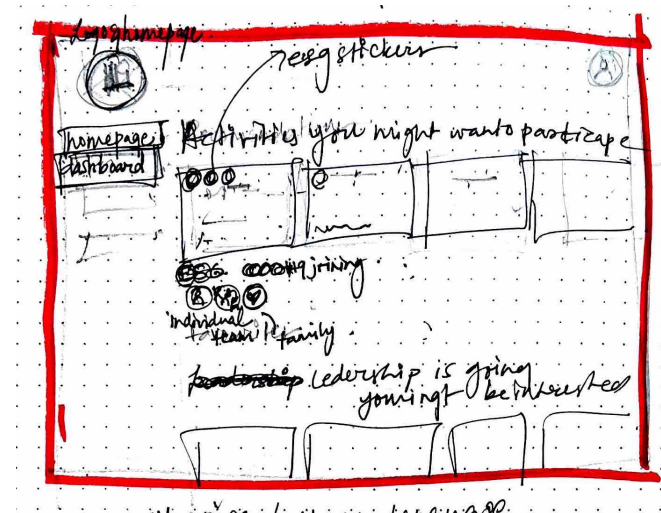 Logo & homepage
esg stickers
homepage
dashboard
Activities you might want to particape
joining
individual
team
family
Ledership is going
beinterested